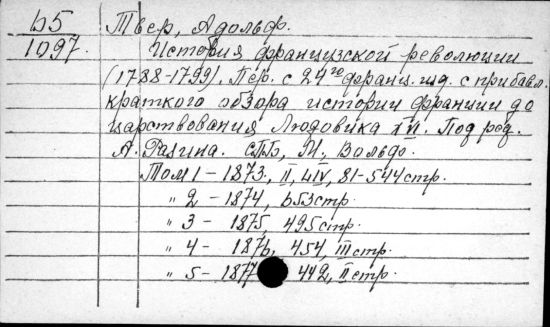 Б5
1097.
Тьер, Адольф.
История французской революции
(1788-1799). Пер. с 24го франц. изд. с прибавл.
краткого обзора истории Франции до
царствования Людовика XVI. Под ред.
А. Разина. СПБ, М, Вольф.
Том 1 - 1873, II, 81-544 стр.
" 2 - 1874, 653 стр.
" 3 - 1875, 495 стр.
" 4 - 1876, 454, III стр.
" 5 - 1877 442, II стр.